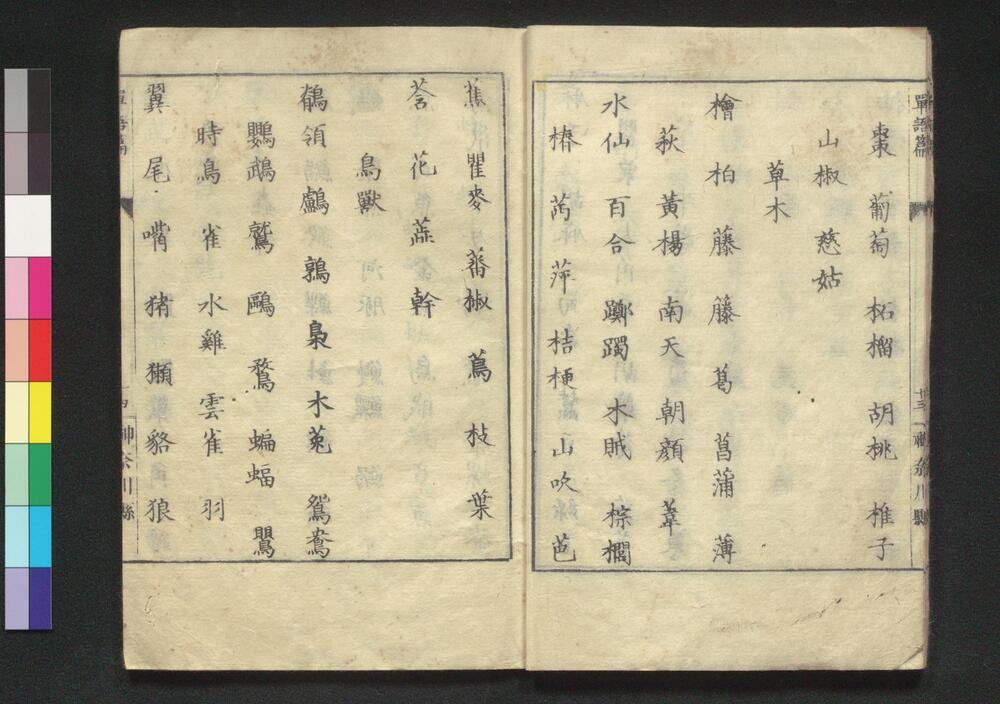 單語篇
十三
神奈川縣
棗 葡萄 柘榴 胡桃 椎子
山椒 慈姑
草木
檜 柏 藤 籐 葛 菖蒲 薄
萩 黃楊 南天 朝顔 葦
水仙 百合 躑躅 木賊 棕櫚
椿 萵 萍 桔梗 山吹 芭
蕉 瞿麥 蕃椒 蔦 枝 葉
莟 花 蕋 幹
鳥獸
鶺領 鸕 鶉 梟 木菟 鴛鴦
鸚鵡 鷲 鷗 鶩 蝙蝠 鷪
時鳥 雀 水雞 雲雀 羽
翼 尾 嘴 猪 獺 貉 狼
神奈川縣